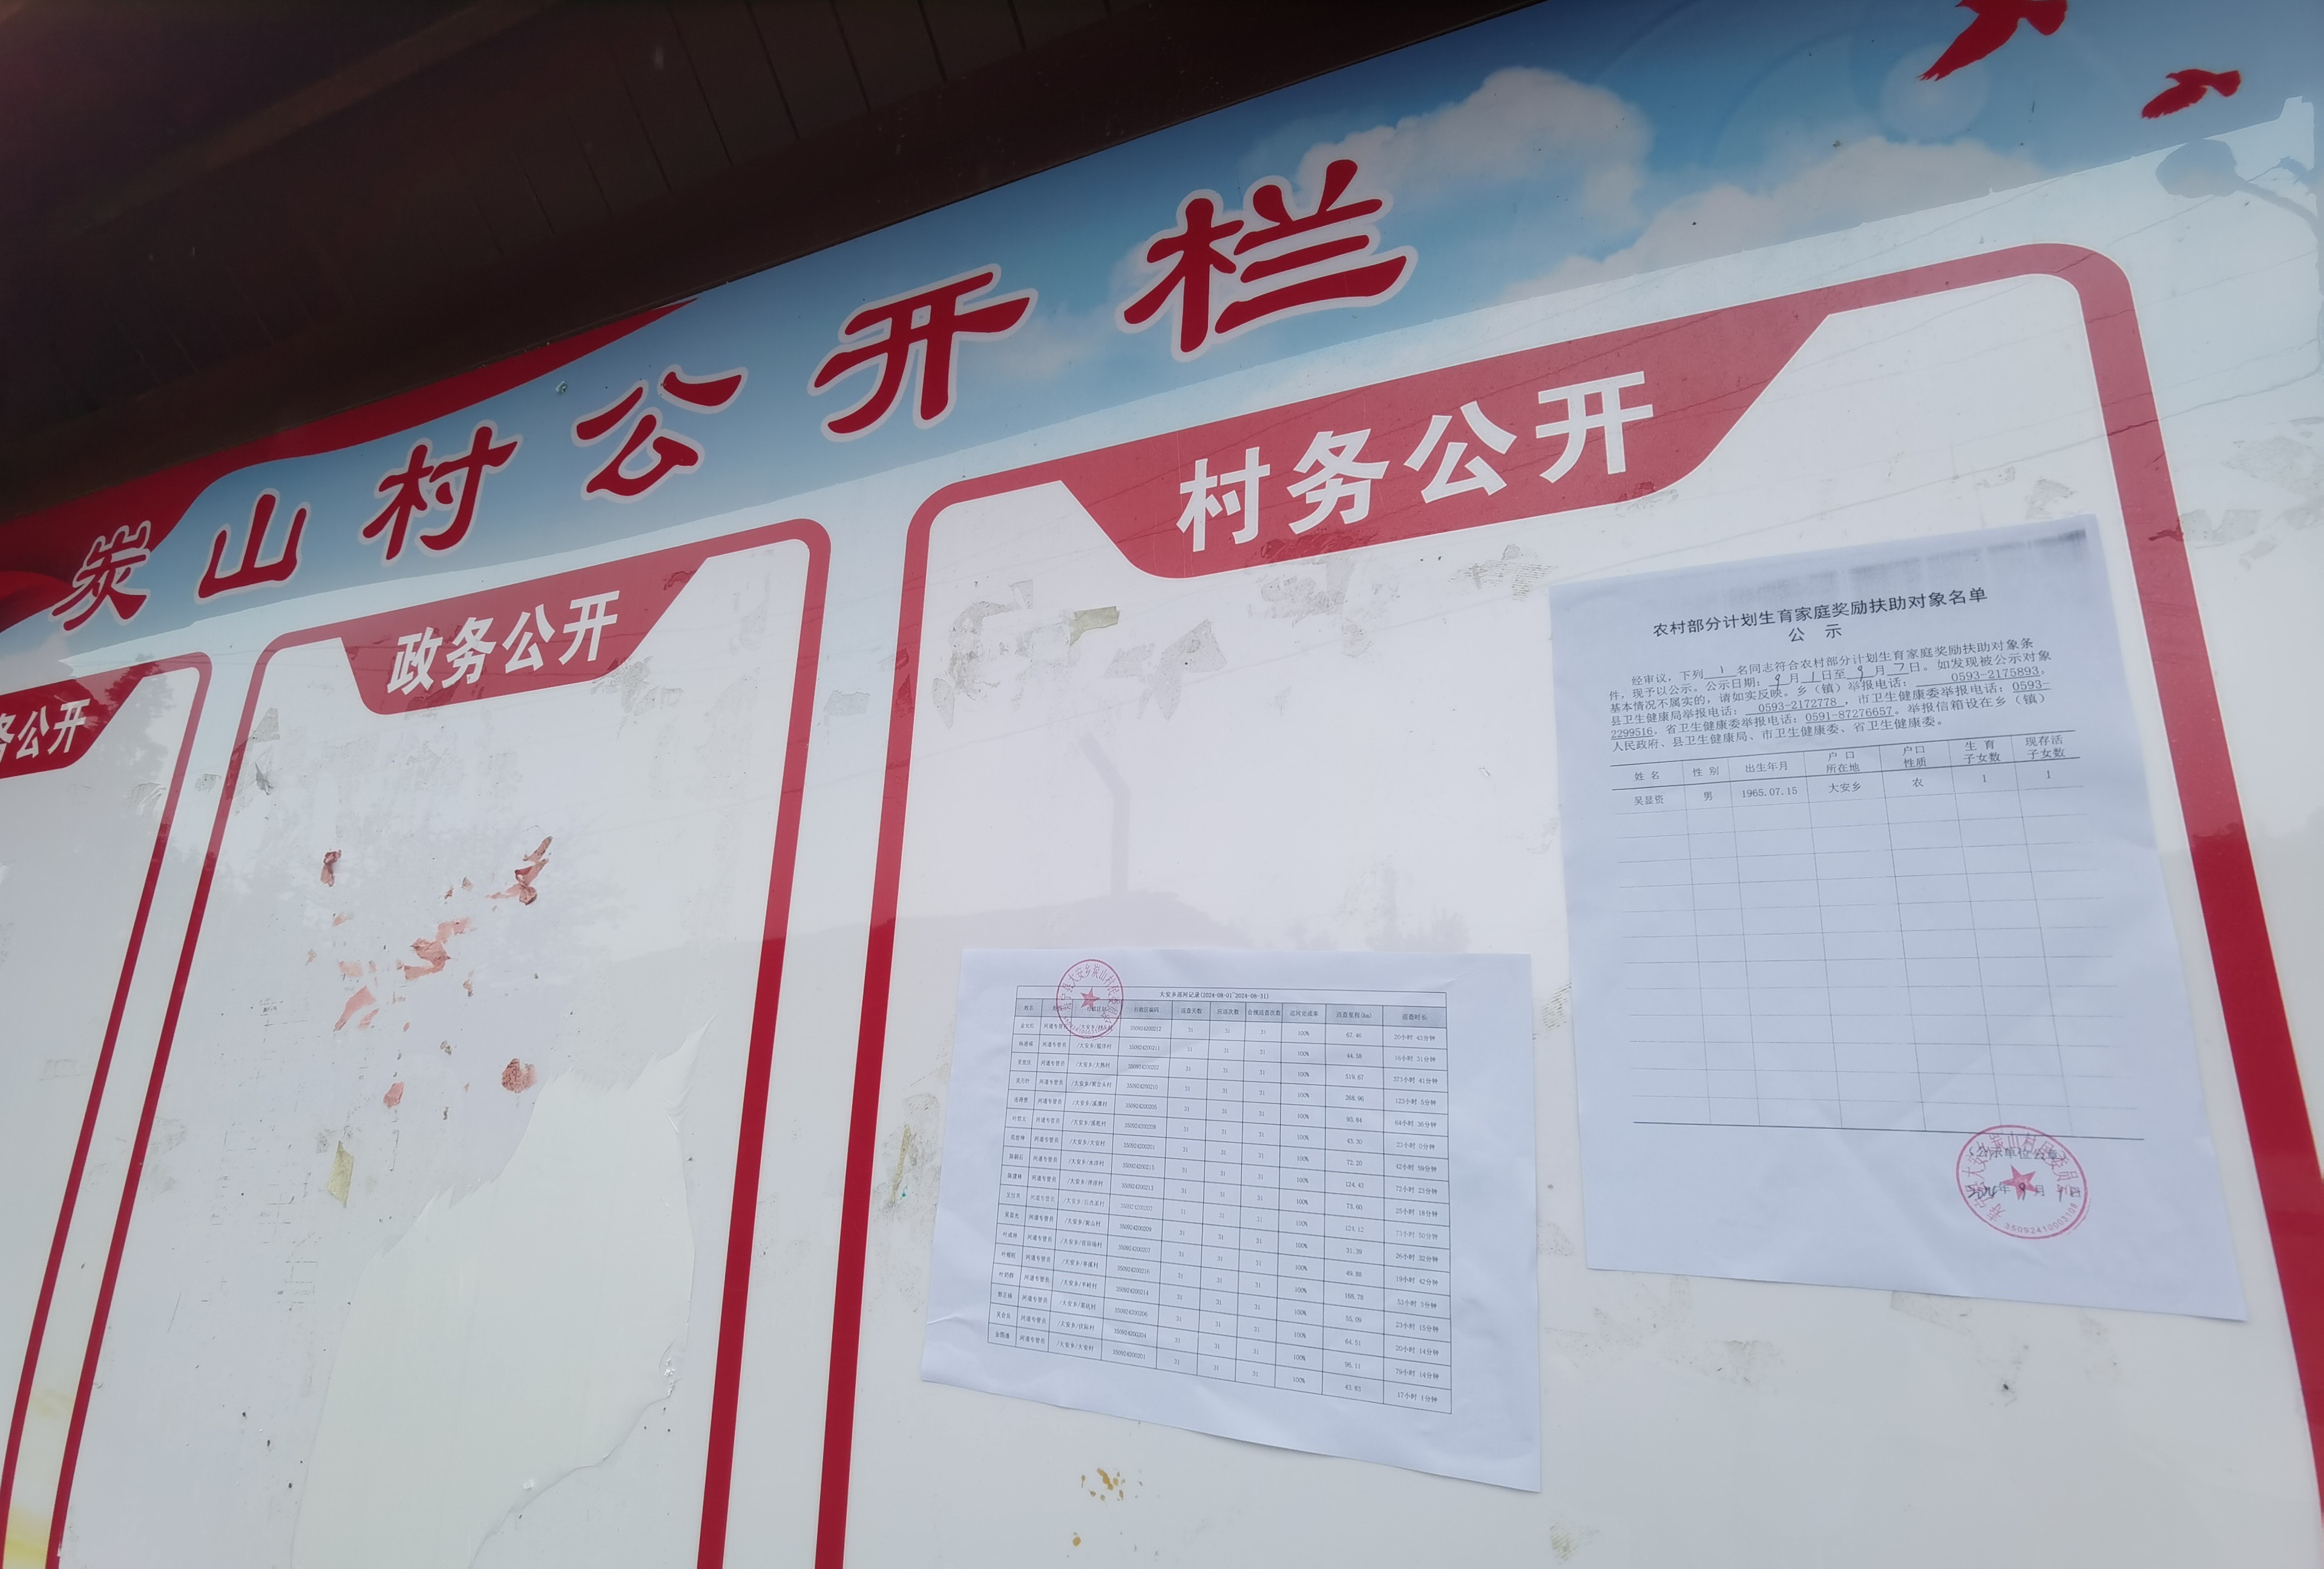 炭山村公开栏
务公开
政务公开
村务公开
农村部分计划生育家庭奖励扶助对象名单
公 示
经审议，下列 1 名同志符合农村部分计划生育家庭奖励扶助对象条
件，现予以公示。公示日期：9月1日至9月7日。如发现被公示对象
基本情况不属实的，请如实反映。乡（镇）举报电话： 0593-2175893，
县卫生健康局举报电话： 0593-2172778 ，市卫生健康委举报电话：0593-
2299516，省卫生健康委举报电话：0591-87276657。举报信箱设在乡（镇）
人民政府、县卫生健康局、市卫生健康委、省卫生健康委。
姓 名 性 别 出生年月 户 口 所在地 户口 性质 生 育 子女数 现存活 子女数
吴显资 男 1965.07.15 大安乡 农 1 1
（公示单位公章）
2024年9月1日
大安乡巡河记录(2024-08-01~2024-08-31)
姓名 行政区编码 巡查天数 应巡次数 合规巡查次数 巡河完成率 巡查里程(km) 巡查时长
河道专管员 350924200212 31 31 31 100% 62.46 20小时 43分钟
河道专管员 350924200211 31 31 31 100% 44.58 16小时 31分钟
河道专管员 350924200202 31 31 31 100% 519.67 273小时 41分钟
河道专管员 350924200210 31 31 31 100% 268.96 123小时 5分钟
河道专管员 350924200205 31 31 31 100% 93.84 64小时 36分钟
河道专管员 350924200208 31 31 31 100% 43.30 23小时 0分钟
河道专管员 /大安乡/大安村 350924200201 31 31 31 100% 72.20 42小时 59分钟
河道专管员 350924200215 31 31 31 100% 124.43 72小时 23分钟
河道专管员 350924200213 31 31 31 100% 73.60 25小时 18分钟
河道专管员 350924200203 31 31 31 100% 124.12 73小时 50分钟
河道专管员 /大安乡/炭山村 350924200209 31 31 31 100% 31.39 26小时 32分钟
河道专管员 350924200207 31 31 31 100% 49.88 19小时 42分钟
河道专管员 350924200216 31 31 31 100% 168.78 53小时 5分钟
河道专管员 350924200214 31 31 31 100% 55.09 23小时 15分钟
河道专管员 350924200206 31 31 31 100% 64.51 20小时 14分钟
河道专管员 350924200204 31 31 31 100% 96.11 79小时 14分钟
河道专管员 /大安乡/大安村 350924200201 31 31 31 100% 43.83 17小时 1分钟